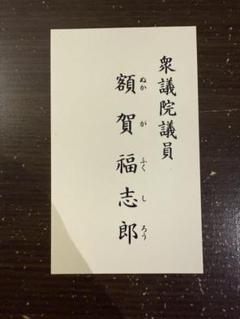 衆議院議員
額賀福志郎
ぬか が ふく し ろう